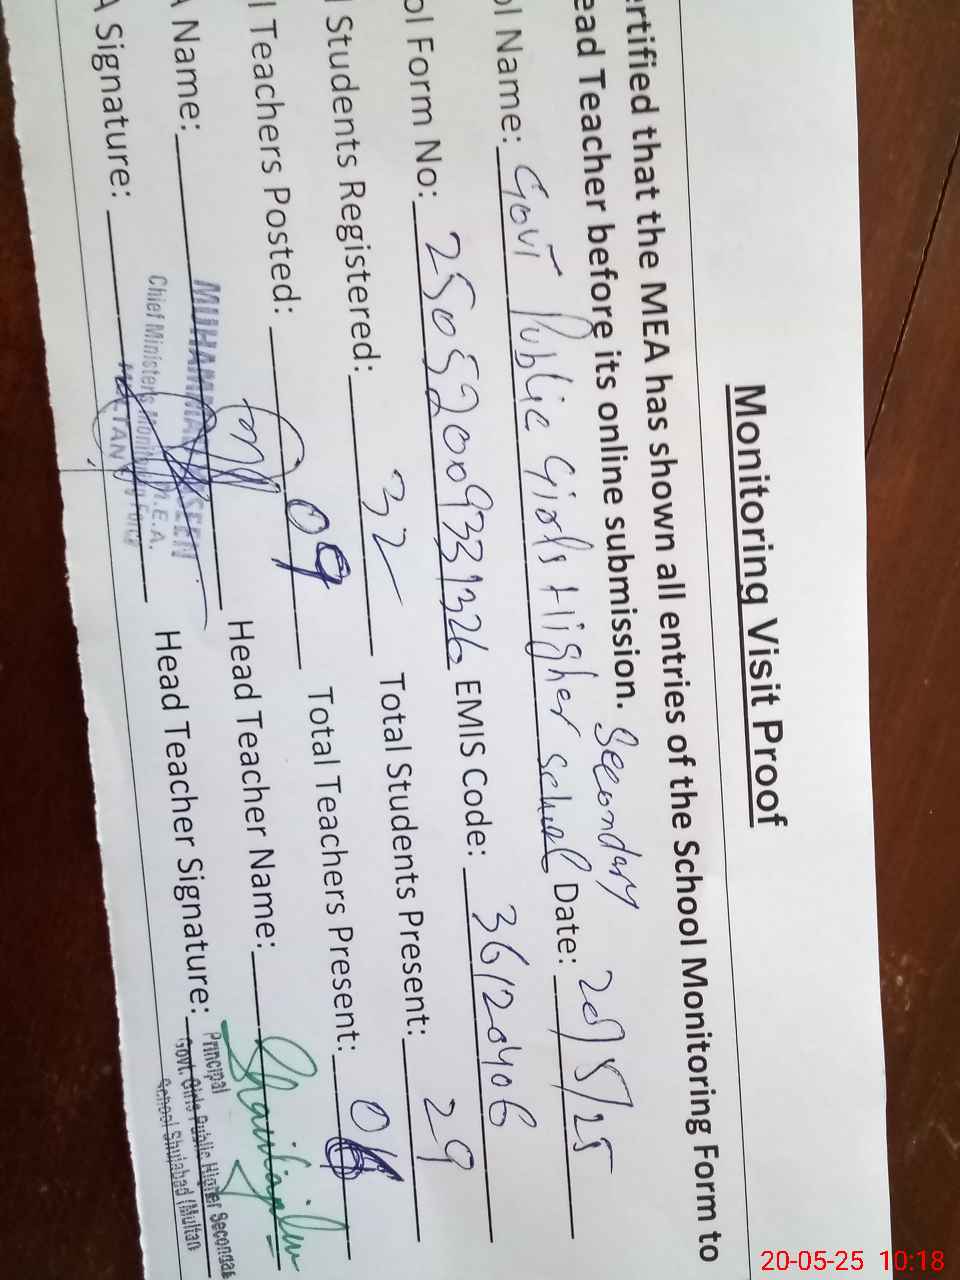 Monitoring Visit Proof
ertified that the MEA has shown all entries of the School Monitoring Form to
ead Teacher before its online submission.
Secondary
ol Name: Govt Public Girls Higher school Date: 20/5/25
ol Form No: 25052009331326 EMIS Code: 36120406
l Students Registered: 32 Total Students Present: 29
l Teachers Posted: 09 Total Teachers Present:
A Name: MUHAMMAD Head Teacher Name:
A Signature: Head Teacher Signature:
Chief Minister's Monitoring Force
MULTAN
Principal
Govt. Girls Public Higher Secondary
School Shujabad (Multan
20-05-25 10:18